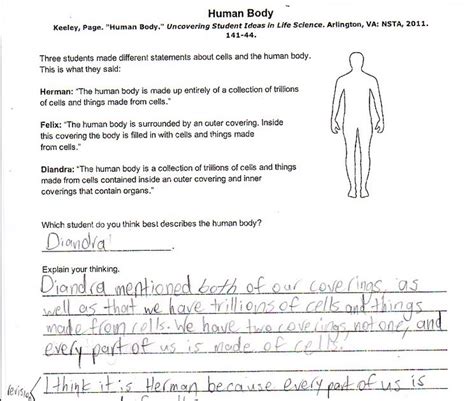 Human Body
Keeley, Page. "Human Body." Uncovering Student Ideas in Life Science. Arlington, VA: NSTA, 2011.
141-44.
Three students made different statements about cells and the human body.
This is what they said:
Herman: "The human body is made up entirely of a collection of trillions
of cells and things made from cells."
Felix: "The human body is surrounded by an outer covering. Inside
this covering the body is filled in with cells and things made
from cells."
Diandra: "The human body is a collection of trillions of cells and things
made from cells contained inside an outer covering and inner
coverings that contain organs."
Which student do you think best describes the human body?
Diandra
Explain your thinking.
Diandra mentioned both of our coverings, as
well as that we have trillions of cells and things
made from cells. We have two coverings, not one, and
every part of us is made of cells.
revision I think it is Herman because every part of us is